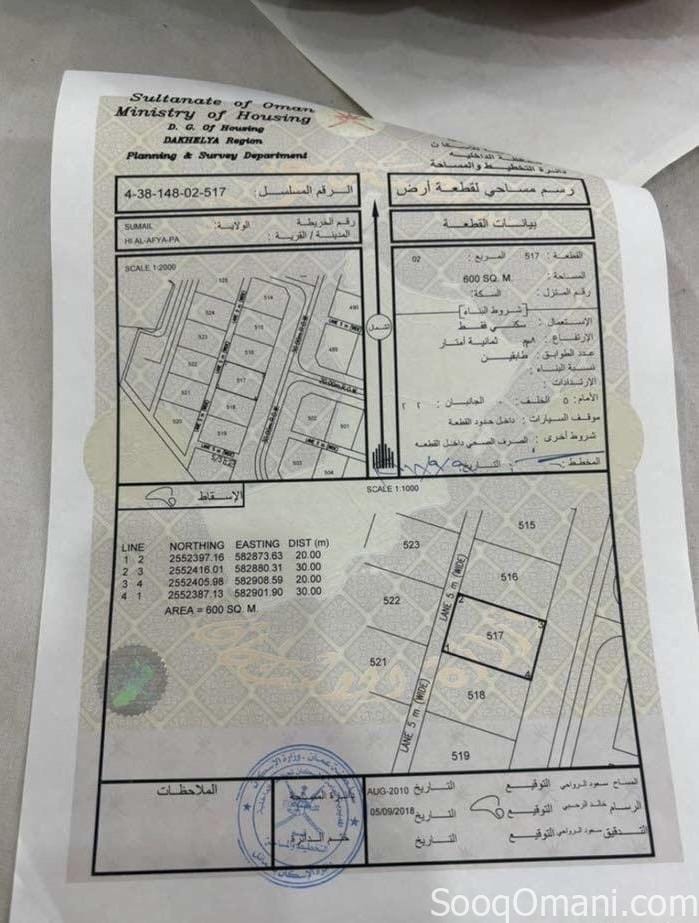 Sultanate of Oman
Ministry of Housing
D. G. Of Housing
DAKHELYA Region
Planning & Survey Department
دائرة التخطيط والمساحة
4-38-148-02-517 الرقم المسلسل:
رسم مساحي لقطعة أرض
SUMAIL الولاية: رقم الخريطة
HI AL-AFYA-PA المدينة / القرية :
بيانات القطعة
القطعة : 517 المربع : 02
المساحة : 600 SQ. M.
رقم المنزل : السكة:
شروط البناء
الإستعمال : سكني فقط
الإرتفاع : ٨م ثمانية أمتار
عدد الطوابق : طابقين
نسبة البناء :
الإرتدادات :
الأمام : ٥ الخلف: الجانبان : ٢ ٢
موقف السيارات : داخل حدود القطعة
شروط أخرى : الصرف الصحي داخل القطعه
المخطط : التاريخ:
SCALE 1:2000
525
514
490
524
515
523
516
489
522
517
20.00m R.O.W.
521
518
502
520
519
501
503
504
الشمال
SCALE 1:1000
الإسقاط
LINE NORTHING EASTING DIST (m)
1 2 2552397.16 582873.63 20.00
2 3 2552416.01 582880.31 30.00
3 4 2552405.98 582908.59 20.00
4 1 2552387.13 582901.90 30.00
AREA = 600 SQ. M.
515
523
516
LANE 5 m (WIDE)
522
2
3
517
1
4
521
518
LANE 5 m (WIDE)
519
الملاحظات
ختم الدائرة
AUG-2010 التاريخ التوقيع المساح سعود الرواحي
05/09/2018 التاريخ التوقيع الرسام خالد الرحبي
التاريخ التوقيع التدقيق سعود الرواحي
SooqOmani.com